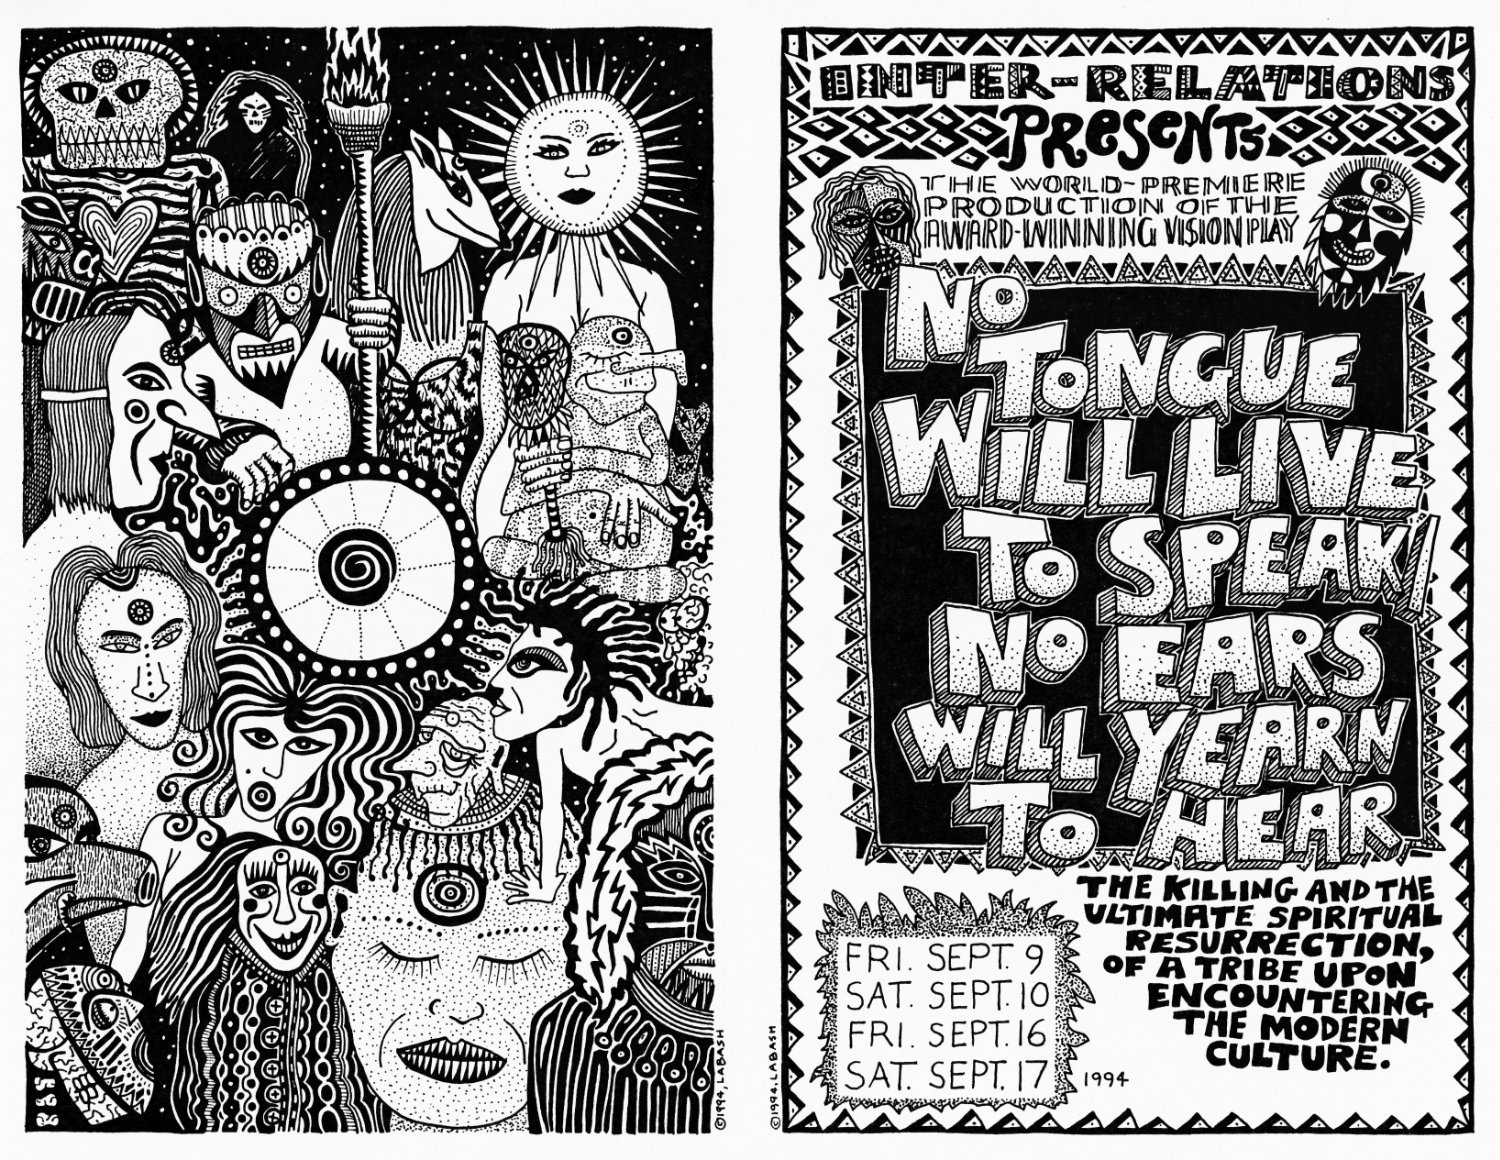 ©1994, LABASH
INTER-RELATIONS
PRESENTS
THE WORLD-PREMIERE
PRODUCTION OF THE
AWARD-WINNING VISION PLAY
NO
TONGUE
WILL LIVE
TO SPEAK/
NO EARS
WILL YEARN
TO HEAR
THE KILLING AND THE
ULTIMATE SPIRITUAL
RESURRECTION,
OF A TRIBE UPON
ENCOUNTERING
THE MODERN
CULTURE.
FRI. SEPT. 9
SAT. SEPT. 10
FRI. SEPT. 16
SAT. SEPT. 17
1994
©1994. LABASH